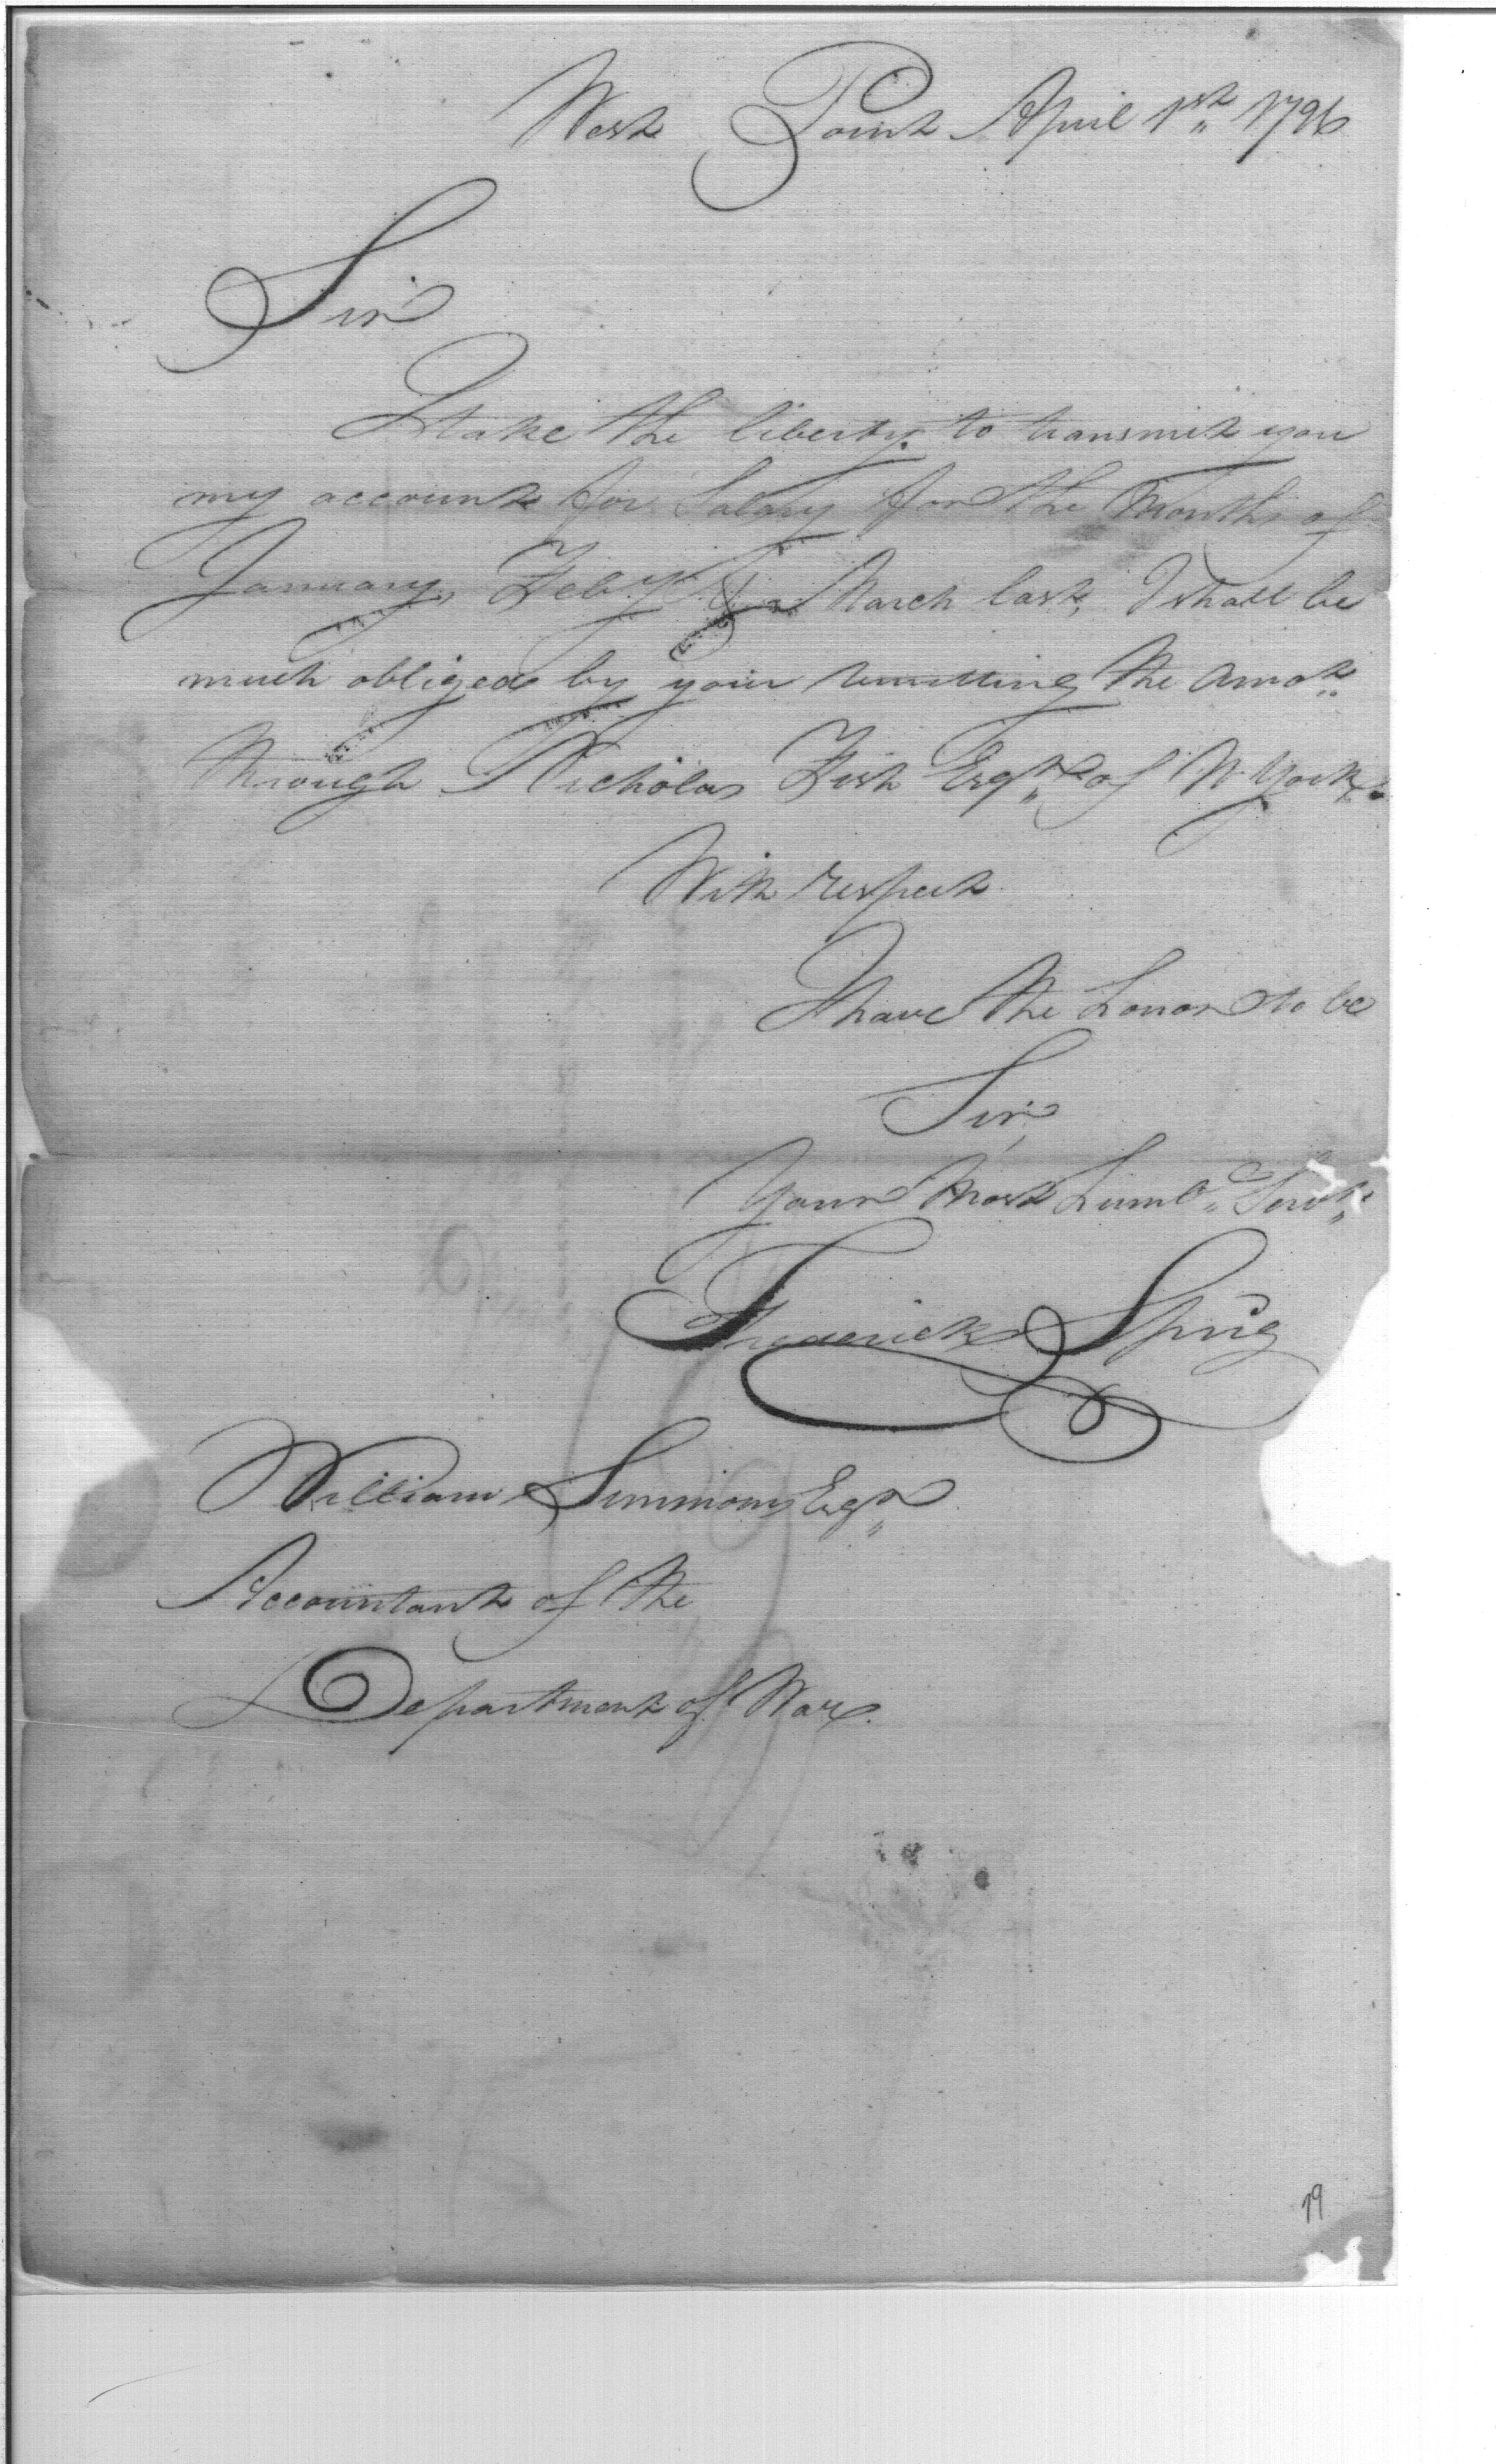 West Point April 1st 1796
Sir
I take the liberty to transmit you
my account for Salary for the Months of
January, Feby. & March last, I shall be
much obliged by your remitting the Amot.
through Nicholas Fish Esqr. of N. York.
With respect
I have the Honor to be
Sir,
Your Most Humb. Servt.
Frederick Sprig
William Simmons Esqr.
Accountant of the
Department of War.
19